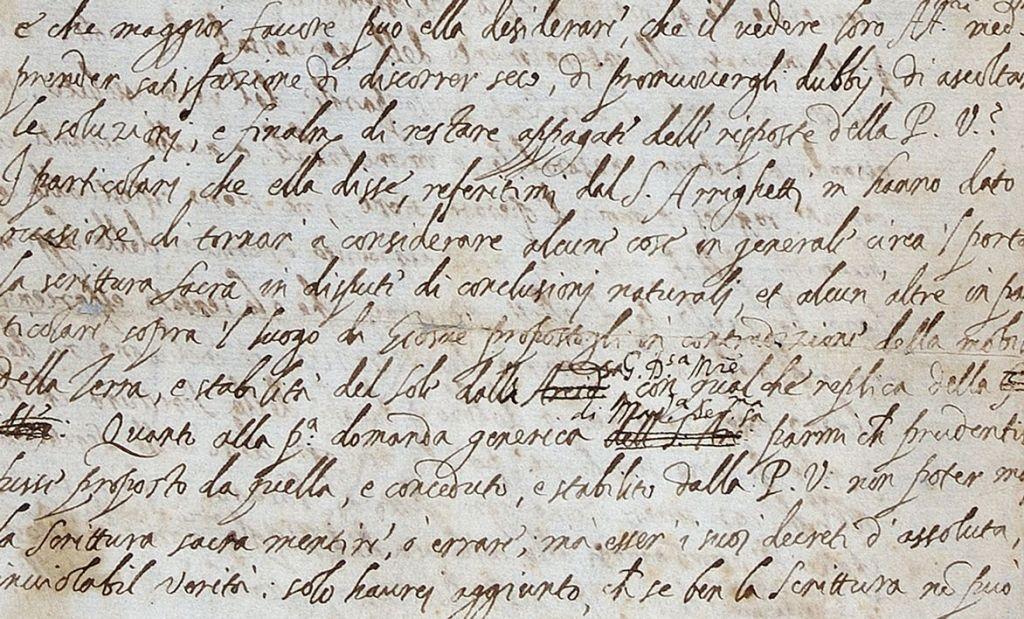 e che maggior favore può ella desiderare, che il vedere loro AA. med.
prender satisfazione di discorrer seco, di promuovergli dubbij, di ascoltar
le soluzioni, e finalm.e di restare appagati delle risposte della P. V.?
I particolari che ella disse, referitimi dal S. Arrighetti m'hanno dato
occasione di tornar à considerare alcune cose in generale circa 'l porta
la scrittura sacra in dispute di conclusioni naturali, et alcun'altre in pa
ticolare sopra 'l luogo di Giosuè propostogli in contradizione della mobi
della Terra, e stabilità del Sole dalla G. D.sa Mre con qualche replica della
di Mad.a Ser.ma
Quanto alla p.a domanda generica parmi ch prudentiss
fusse proposto da quella, e conceduto, e stabilito dalla P. V. non poter ma
la Scrittura sacra mentire, ò errare, ma esser i suoi decreti d'assoluta,
inviolabil verità: solo haurei aggiunto, ch se ben la Scrittura nō può